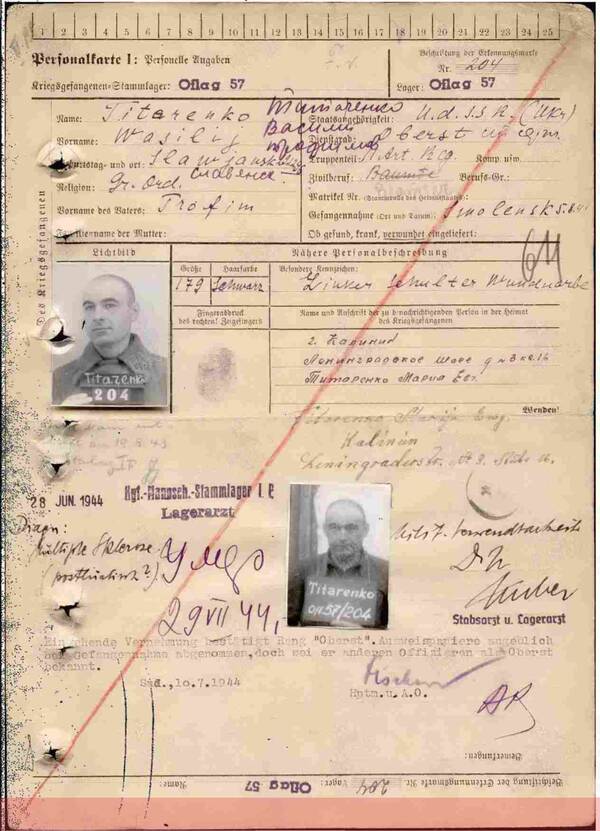 1 2 3 4 5 6 7 8 9 10 11 12 13 14 15 16 17 18 19 20 21 22 23 24 25
Personalkarte I: Personelle Angaben
Beschriftung der Erkennungsmarke
Nr. 204
Kriegsgefangenen-Stammlager: Oflag 57
Lager: Oflag 57
Des Kriegsgefangenen
Name: Titarenko Титаренко
Staatsangehörigkeit: U.d.S.S.R. (Ukr)
Vorname: Wasilij Василий
Dienstgrad: Oberst
Geburtstag- und ort: Slawjansk Славянск
Truppenteil: Art. Reg. Komp. usw.
Religion: Gr. Ord.
Zivilberuf: Beamte Berufs-Gr.
Vorname des Vaters: Trofim
Matrikel Nr. (Stammrolle des Heimatstaates)
Gefangennahme (Ort und Datum) Smolensk 5.8.41
Familienname der Mutter:
Ob gesund, krank, verwundet eingeliefert:
Lichtbild
Nähere Personalbeschreibung
Größe Haarfarbe Besondere Kennzeichen:
179 Schwarz Linker Schulter Wundnarbe
Fingerabdruck
des rechten! Zeigefingers
Name und Anschrift der zu benachrichtigenden Person in der Heimat
des Kriegsgefangenen
г. Калинин
Ленинградское шосе д №3 кв. 16
Титаренко Мария Евг.
Titarenko
204
Wenden!
Titarenko Marija Ewg.
Kalinin
Leningraderstr. № 3. Stube 16.
28 JUN. 1944 Kgf.-Mannsch.-Stammlager I F
Lagerarzt
Diagn:
Multiple Sklerose
Умер
29 VII 44.
Titarenko
Of 57/204
Stabsarzt u. Lagerarzt
Eingehende Vernehmung bestätigt Rang "Oberst". Ausweispapiere angeblich
bei Gefangennahme abgenommen, doch sei er anderen Offizieren als Oberst
bekannt.
Sud., 10.7.1944
Fischer
Hptm.u.A.O.
Bemerkungen:
Beschriftung der Erkennungsmarke Nr. 204 Lager: Oflag 57 Name: